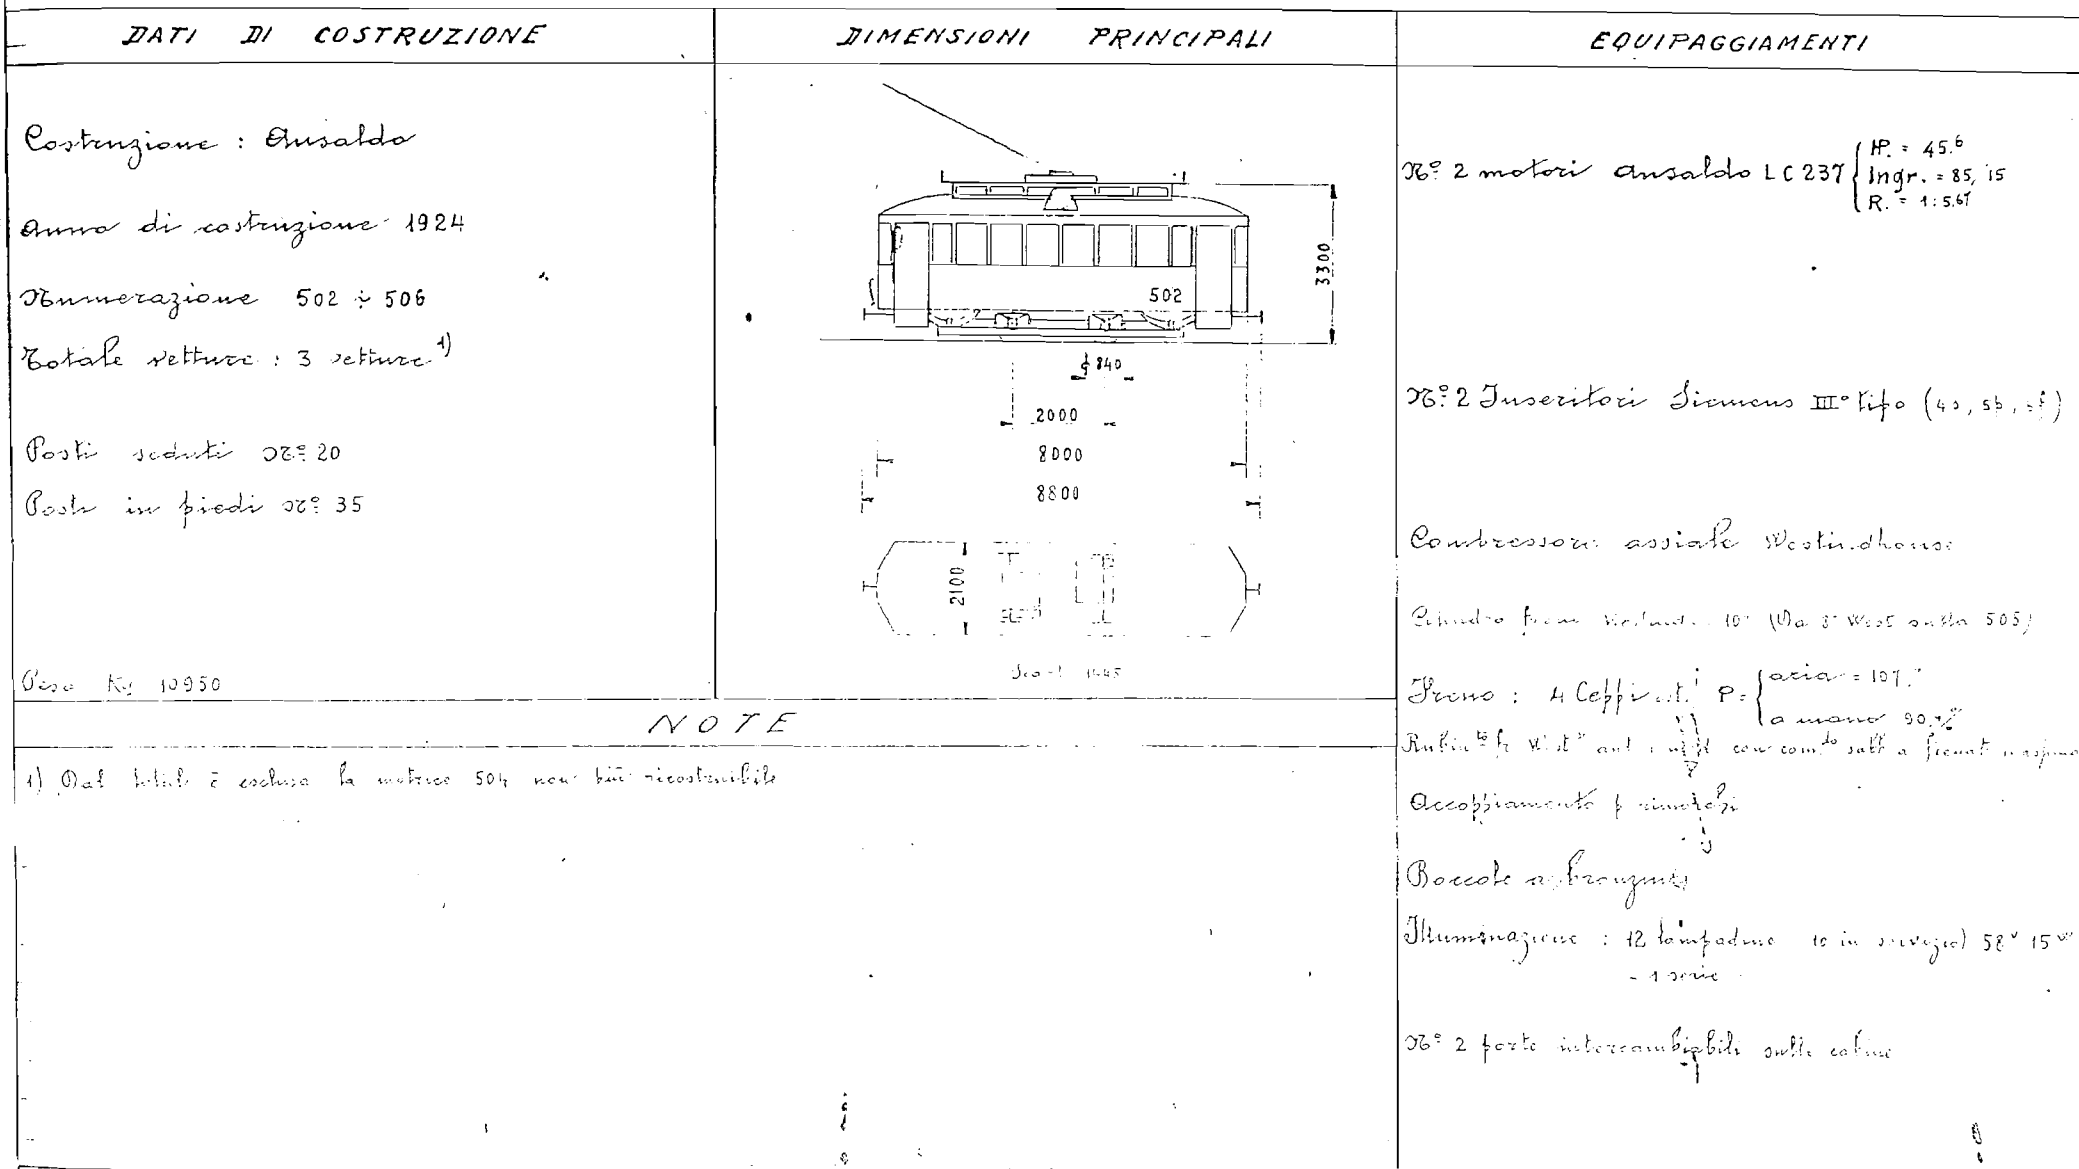 DATI DI COSTRUZIONE
Costruzione : Ansaldo
Anno di costruzione 1924
Numerazione 502 ÷ 506
Totale vetture : 3 vetture 1)
Posti seduti N° 20
Posti in piedi N° 35
Peso Kg 10950
DIMENSIONI PRINCIPALI
502
3300
ϕ 840
2000
8000
8800
2100
EQUIPAGGIAMENTI
N° 2 motori Ansaldo LC 237
HP. = 45.6
Ingr. = 85, 15
R. = 1:5.67
N° 2 Inseritori Siemens III° tipo (4s, 5p,
Compressore assiale Westinghouse
Cilindro freno 10" (Da 8" West sulla 505)
Freno : 4 Ceppi P =
aria = 107
a mano 90
Accoppiamento p rimorchi
Boccole a bronzine
Illuminazione : 12 lampadine 10 in servizio) 58v 15w
- 1 serie
N° 2 porte intercambiabili sulle cabine
NOTE
1) Dal totale è esclusa la motrice 504 non più ricostruibile